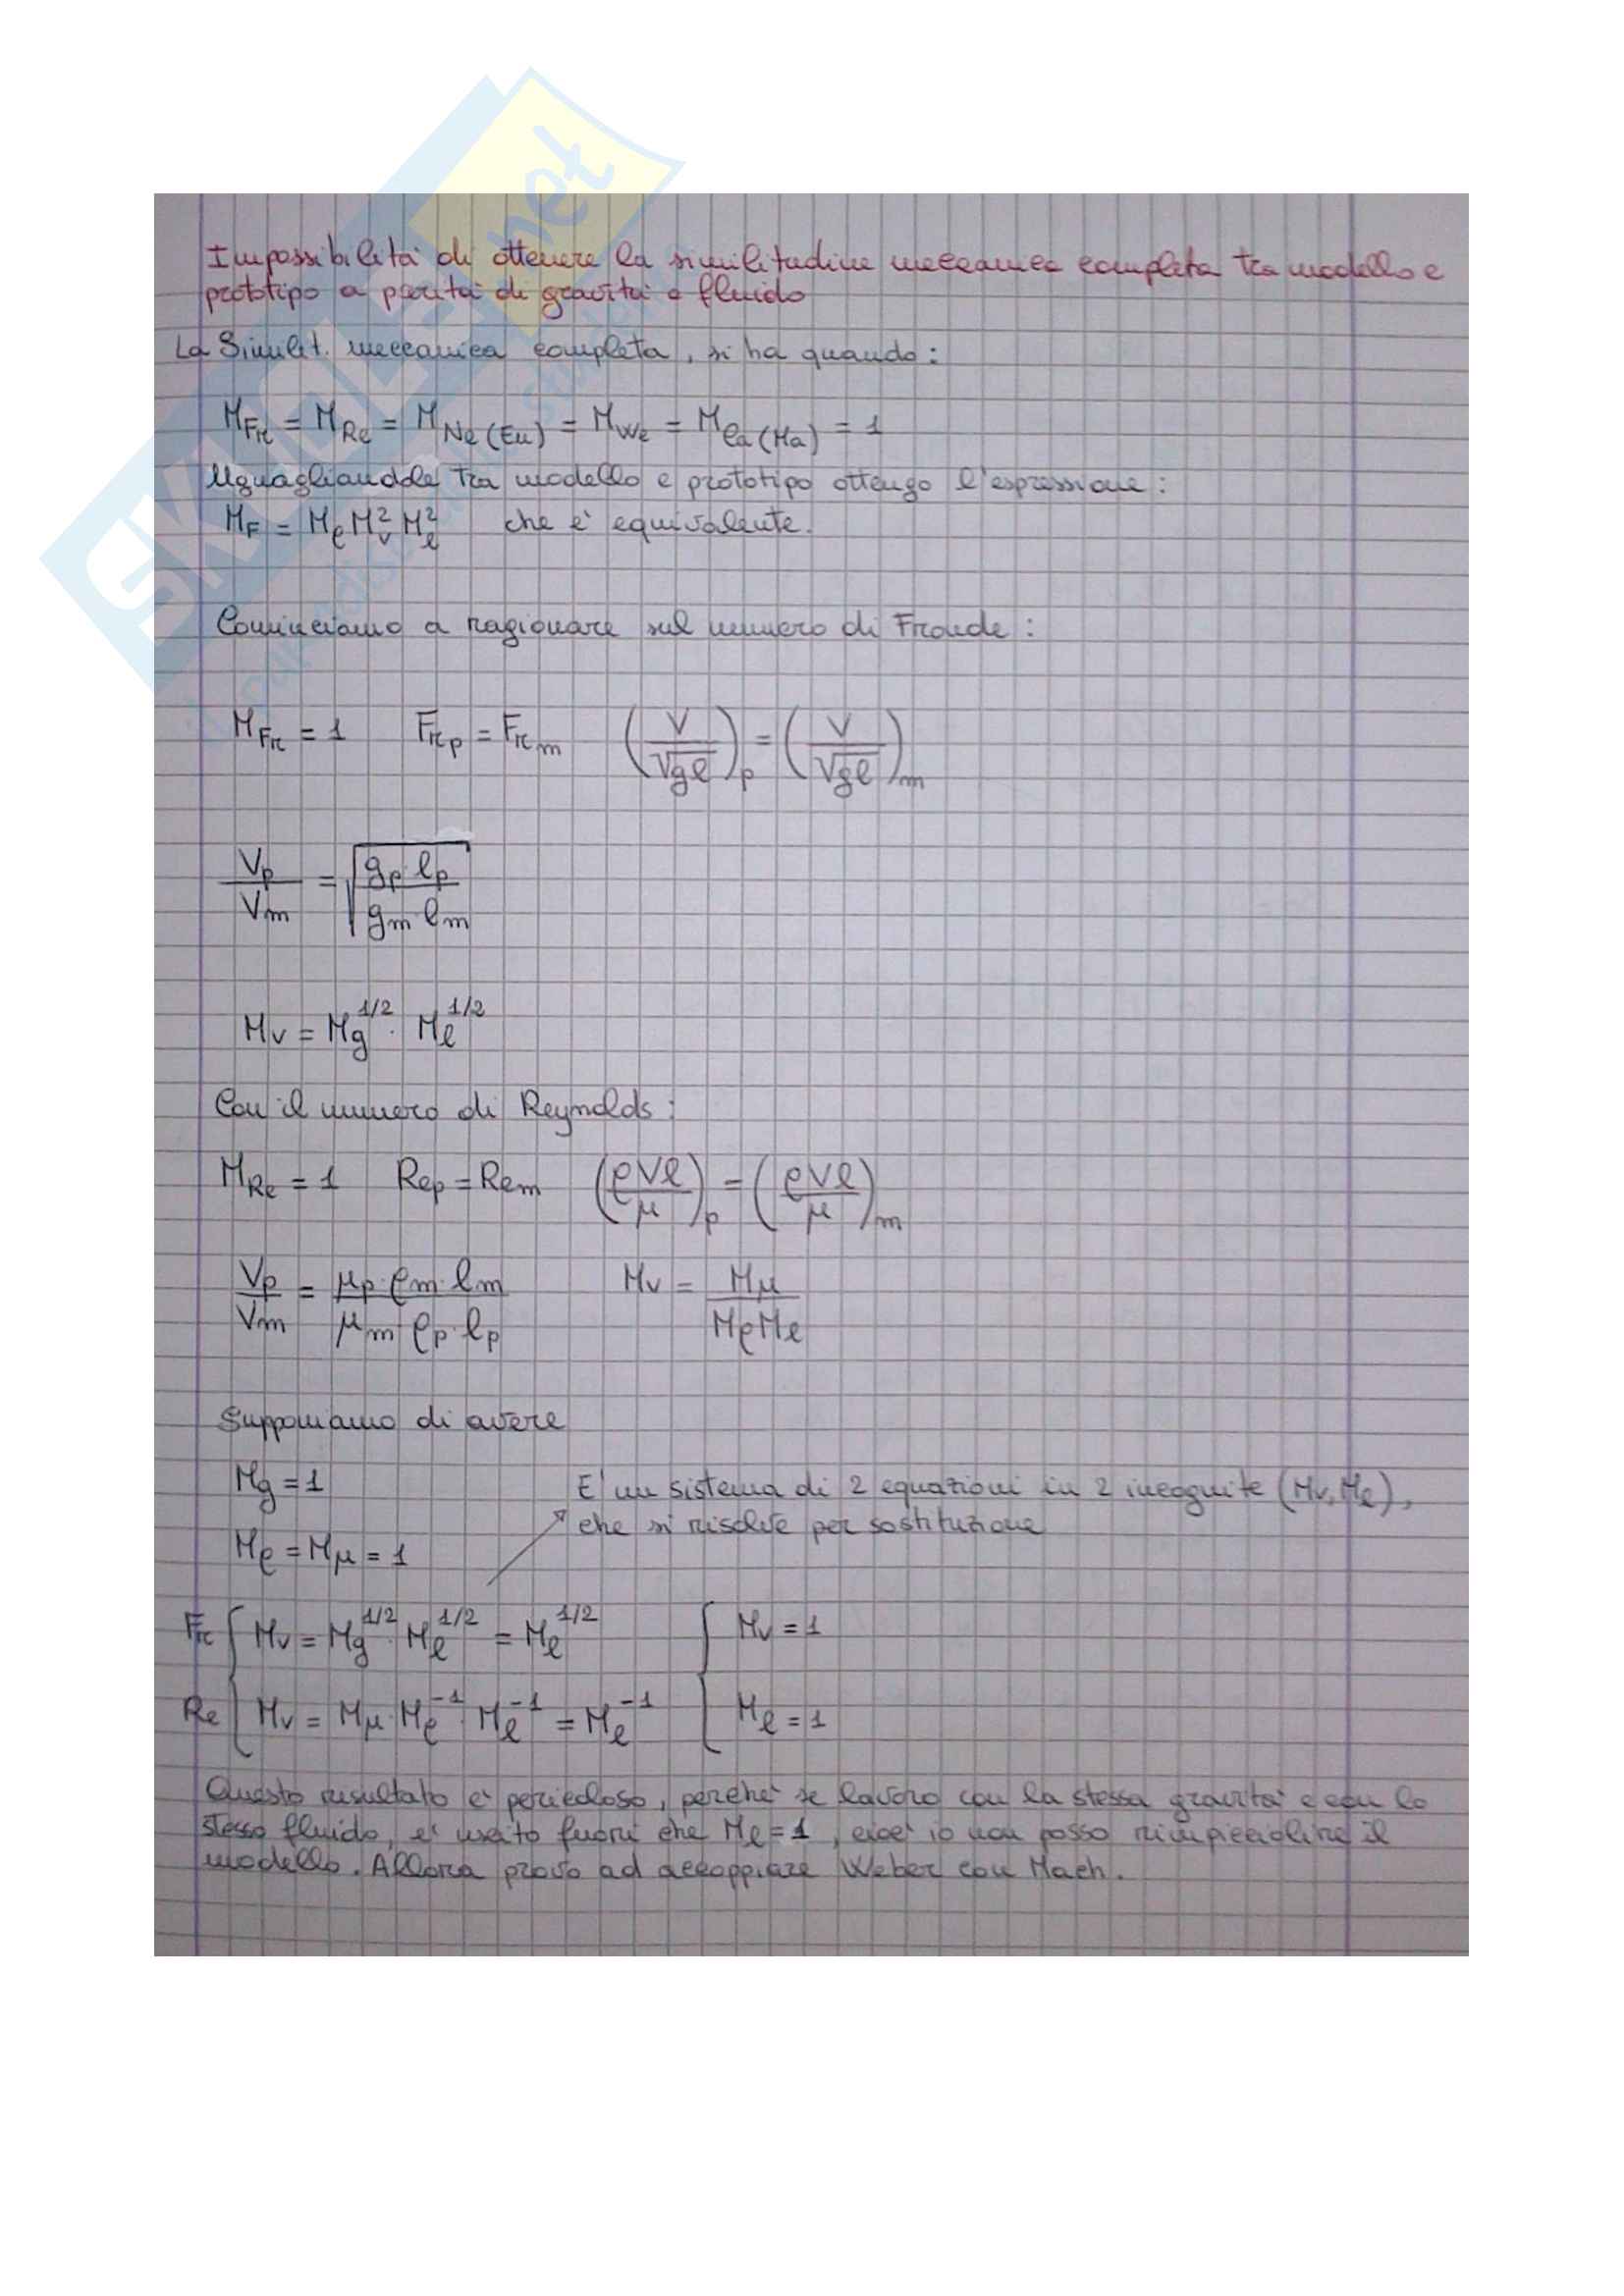 Impossibilità di ottenere la similitudine meccanica completa tra modello e
prototipo a parità di gravità e fluido
La Similit. meccanica completa, si ha quando:
M_Fr = M_Re = M_Ne(Eu) = M_We = M_Ca(Ma) = 1
Uguagliandole tra modello e prototipo ottengo l'espressione:
M_F = M_ρ M_v² M_l² che è equivalente.
Cominciamo a ragionare sul numero di Froude:
M_Fr = 1 Fr_p = Fr_m (V/√gl)_p = (V/√gl)_m
V_p/V_m = √(g_p·l_p / g_m·l_m)
M_v = M_g^1/2 · M_l^1/2
Con il numero di Reynolds:
M_Re = 1 Re_p = Re_m (ρVl/μ)_p = (ρVl/μ)_m
V_p/V_m = μ_p·ρ_m·l_m / μ_m·ρ_p·l_p M_v = M_μ / M_ρ M_l
Supponiamo di avere
M_g = 1
E' un sistema di 2 equazioni in 2 incognite (M_v, M_l),
che si risolve per sostituzione
M_ρ = M_μ = 1
Fr { M_v = M_g^1/2 · M_l^1/2 = M_l^1/2 { M_v = 1
Re { M_v = M_μ · M_ρ^-1 · M_l^-1 = M_l^-1 { M_l = 1
Questo risultato è pericoloso, perchè se lavoro con la stessa gravità e con lo
stesso fluido, è uscito fuori che M_l = 1, cioè io non posso rimpicciolire il
modello. Allora provo ad accoppiare Weber con Mach.
SKUOLA.net